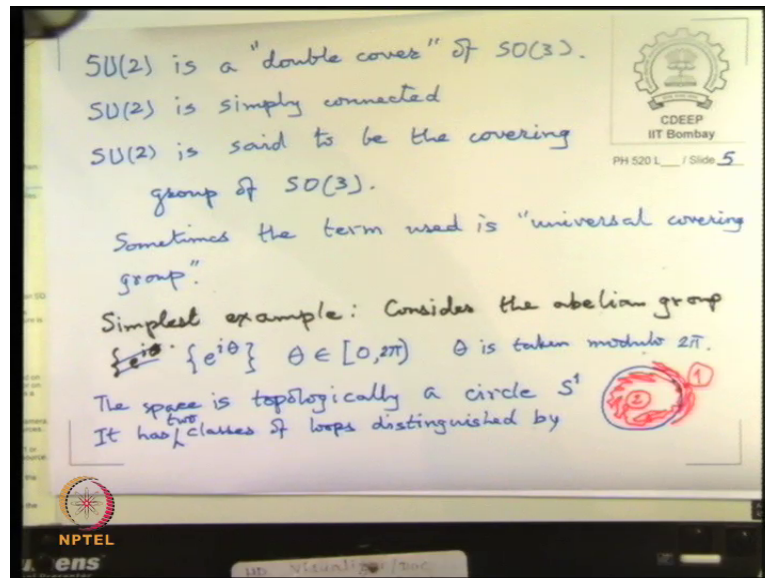 SU(2) is a "double cover" of SO(3).
SU(2) is simply connected
SU(2) is said to be the covering
group of SO(3).
Sometimes the term used is "universal covering
group".
Simplest example: Consider the abelian group
{e^{iθ}} θ ∈ [0,2π) θ is taken modulo 2π.
The space is topologically a circle S¹
two
It has classes of loops distinguished by
1
2
CDEEP
IIT Bombay
PH 520 L___ / Slide 5
NPTEL
ens